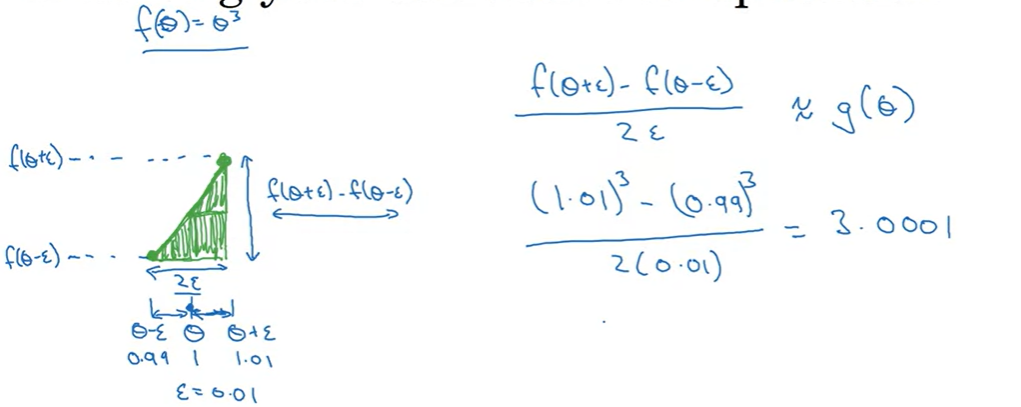 f(θ) = θ³
f(θ+ε)
f(θ-ε)
f(θ+ε) - f(θ-ε)
2ε
θ-ε θ θ+ε
0.99 1 1.01
ε = 0.01
f(θ+ε) - f(θ-ε)
2ε
≈ g(θ)
(1.01)³ - (0.99)³
2(0.01)
= 3.0001